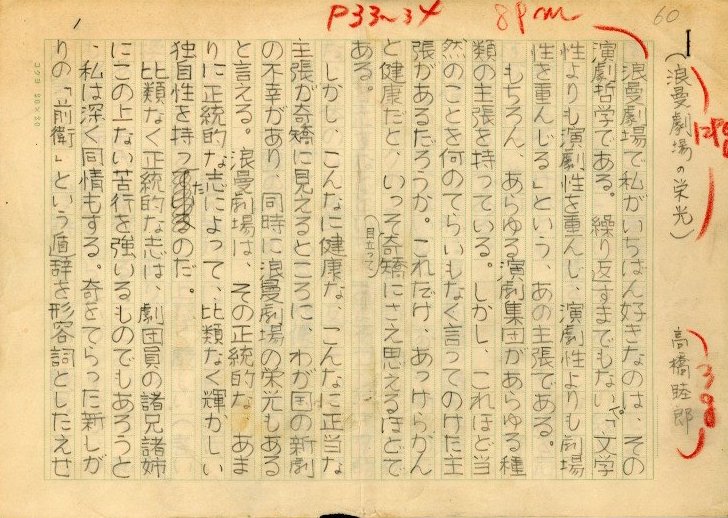 P33〜34　8Pm　60
1
(浪曼劇場の栄光)
高橋睦郎
浪曼劇場で私がいちばん好きなのは、その
演劇哲学である。繰り返すまでもない、「文学
性よりも演劇性を重んじ、演劇性よりも劇場
性を重んじる」という、あの主張である。
もちろん、あらゆる演劇集団があらゆる種
類の主張を持っている。しかし、これほど当
然のことを何のてらいもなく言ってのけた主
張があるだろうか。これだけ、あっけらかん
と健康だと、いっそ(目立って)奇矯にさえ思えるほどで
ある。
しかし、こんなに健康な、こんなに正当な
主張が奇矯に見えるところに、わが国の新劇
の不幸があり、同時に浪曼劇場の栄光もある
と言える。浪曼劇場は、その正統的な、あま
りに正統的な志によって、比類なく輝かしい
独自性を持ったのだ。
比類なく正統的な志は、劇団員の諸兄諸姉
にこの上ない苦行を強いるものでもあろうと
、私は深く同情もする。奇をてらった新しが
りの「前衛」という遁辞を形容詞としたえせ
コクヨ 20×20